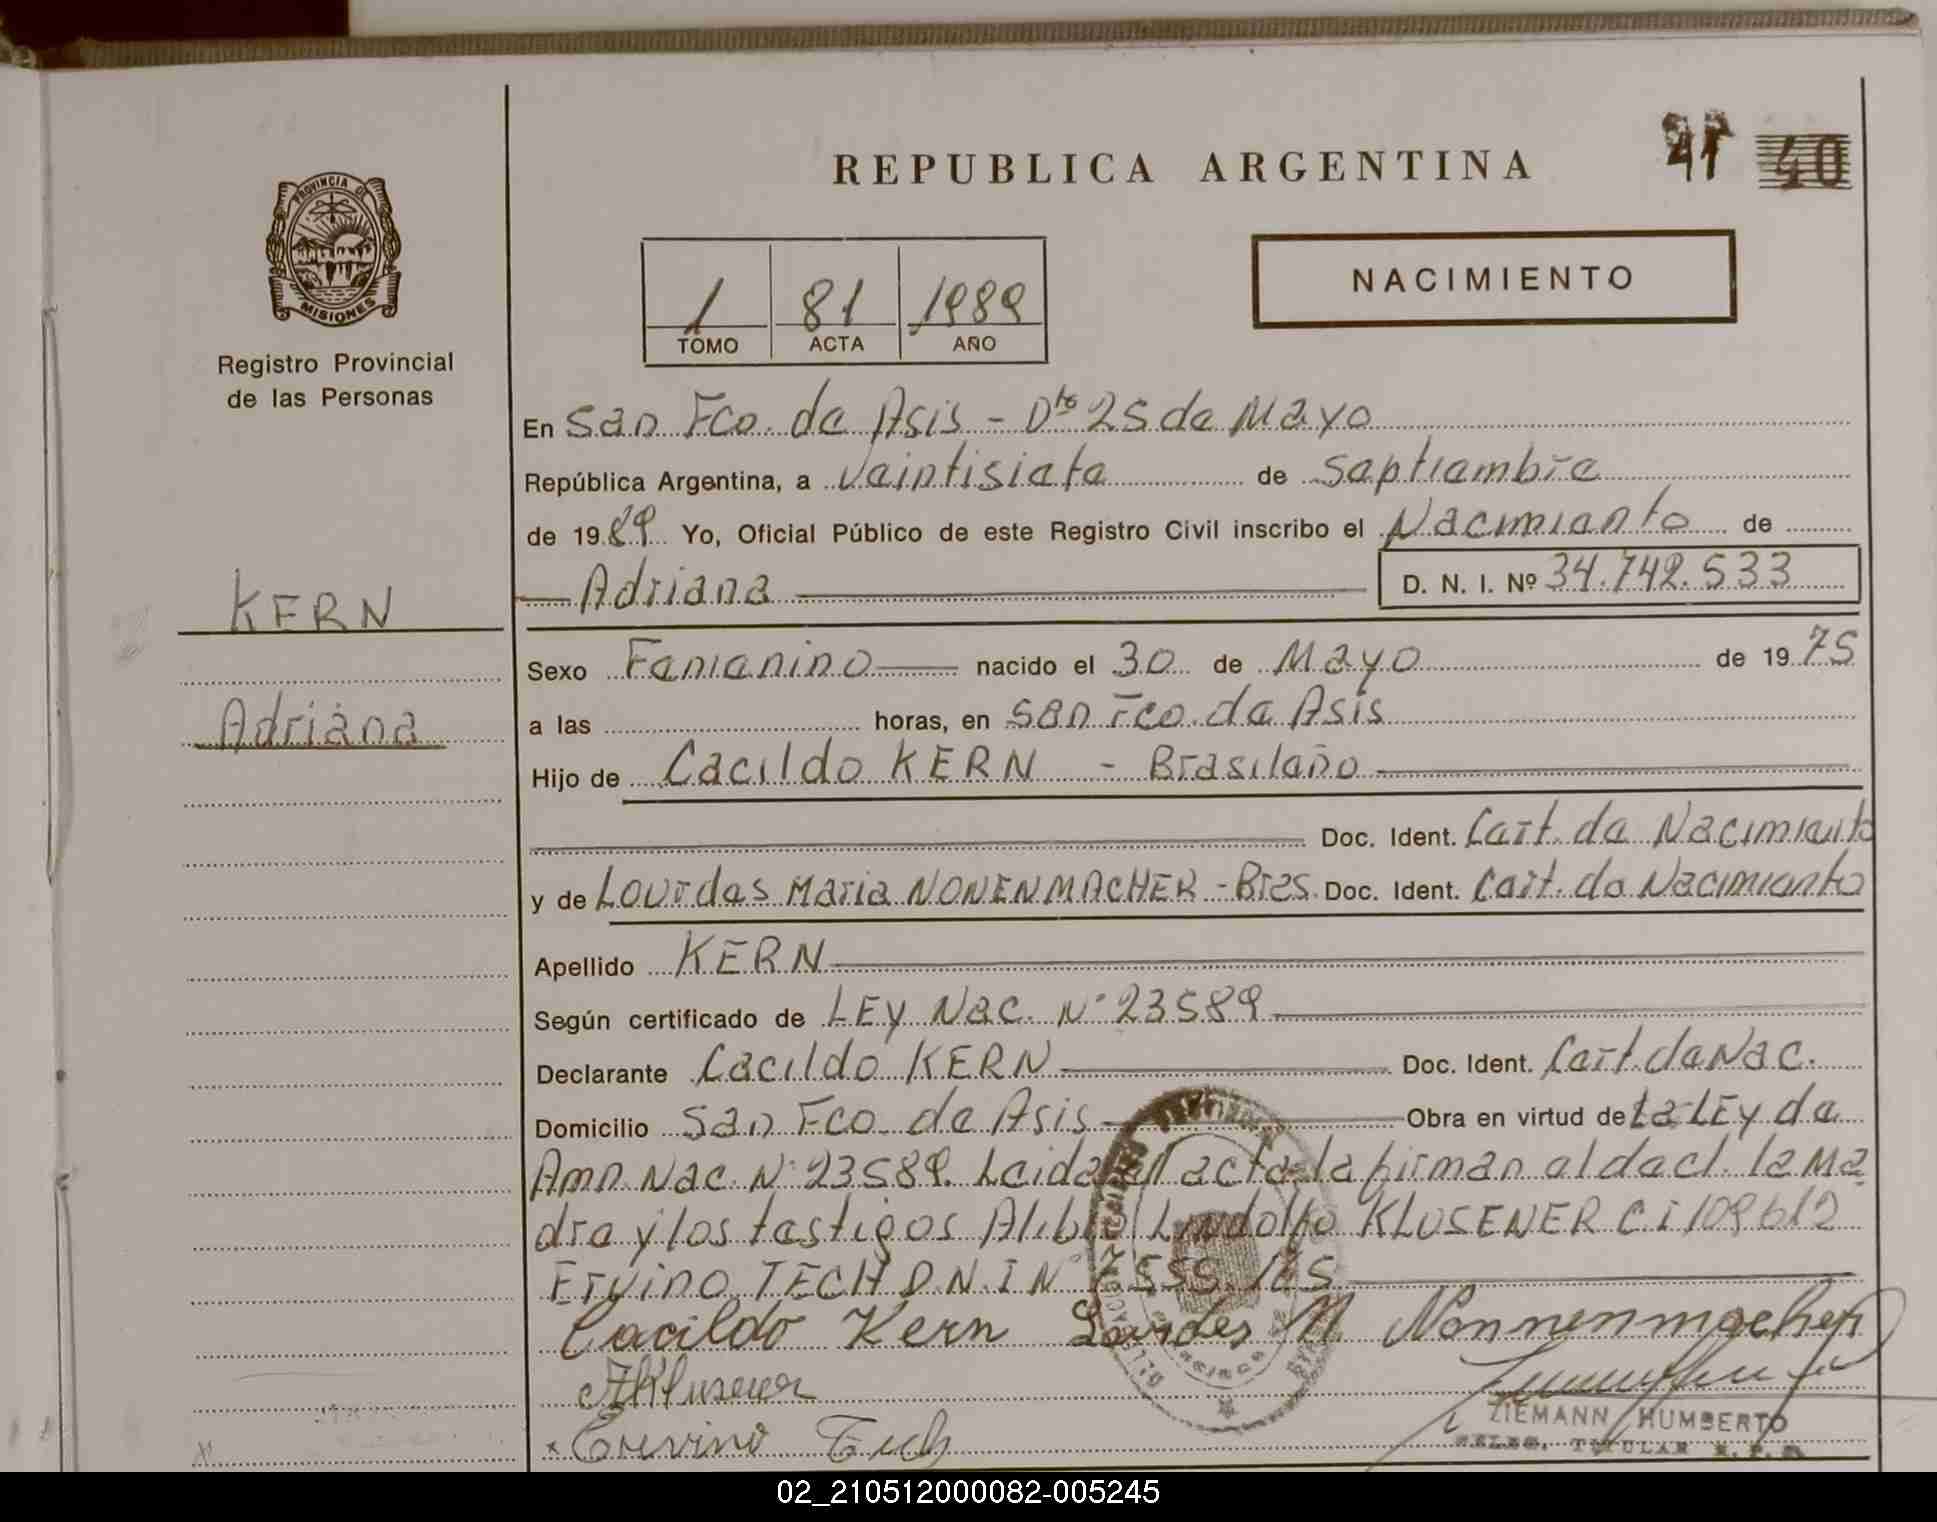 REPUBLICA ARGENTINA
41 40
PROVINCIA DE
MISIONES
Registro Provincial
de las Personas
NACIMIENTO
1 81 1989
TOMO ACTA AÑO
En San Fco. de Asis - Dto 25 de Mayo
República Argentina, a veintisiete de septiembre
de 1989 Yo, Oficial Público de este Registro Civil inscribo el Nacimiento de
Adriana D. N. I. Nº 34.742.533
KERN
Adriana
Sexo Femenino nacido el 30 de Mayo de 1975
a las horas, en San Fco. de Asis
Hijo de Cacildo KERN - Brasileño
Doc. Ident. Cert. de Nacimiento
y de Lourdes Maria NONENMACHER - Bras. Doc. Ident. Cert. de Nacimiento
Apellido KERN
Según certificado de LEY Nac. N° 23589
Declarante Cacildo KERN Doc. Ident. Cert. de Nac.
Domicilio San Fco. de Asis Obra en virtud de La LEY de
Amn. Nac. N° 23589. Leida el acta, la firman el decl. la Ma
dre y los testigos Alibio Lindolfo KLUSENER C.i 109612
Ervino TECH D.N.I N°
Cacildo Kern Lourdes M. Nonnenmacher
AKlusener
x Ervino Tech
ZIEMANN HUMBERTO
DELEG. TITULAR R. P. P.
02_210512000082-005245